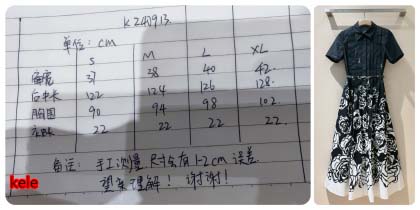 K241913.
单位：cm
S M L XL
肩宽 37 38 40 42.
后中长 122 124 126 128.
胸围 90 94 98 102.
22 22 22 22
备注：手工测量尺寸会有1-2cm 误差.
望亲理解！谢谢！
kele